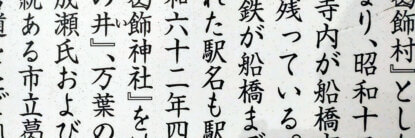 葛飾村』とし
より、昭和十
寺内が船橋
残っている。
鉄が船橋ま
れた駅名も駅
和六十二年四
葛飾神社』を
の井』、万葉の
成瀬氏および
統ある市立葛